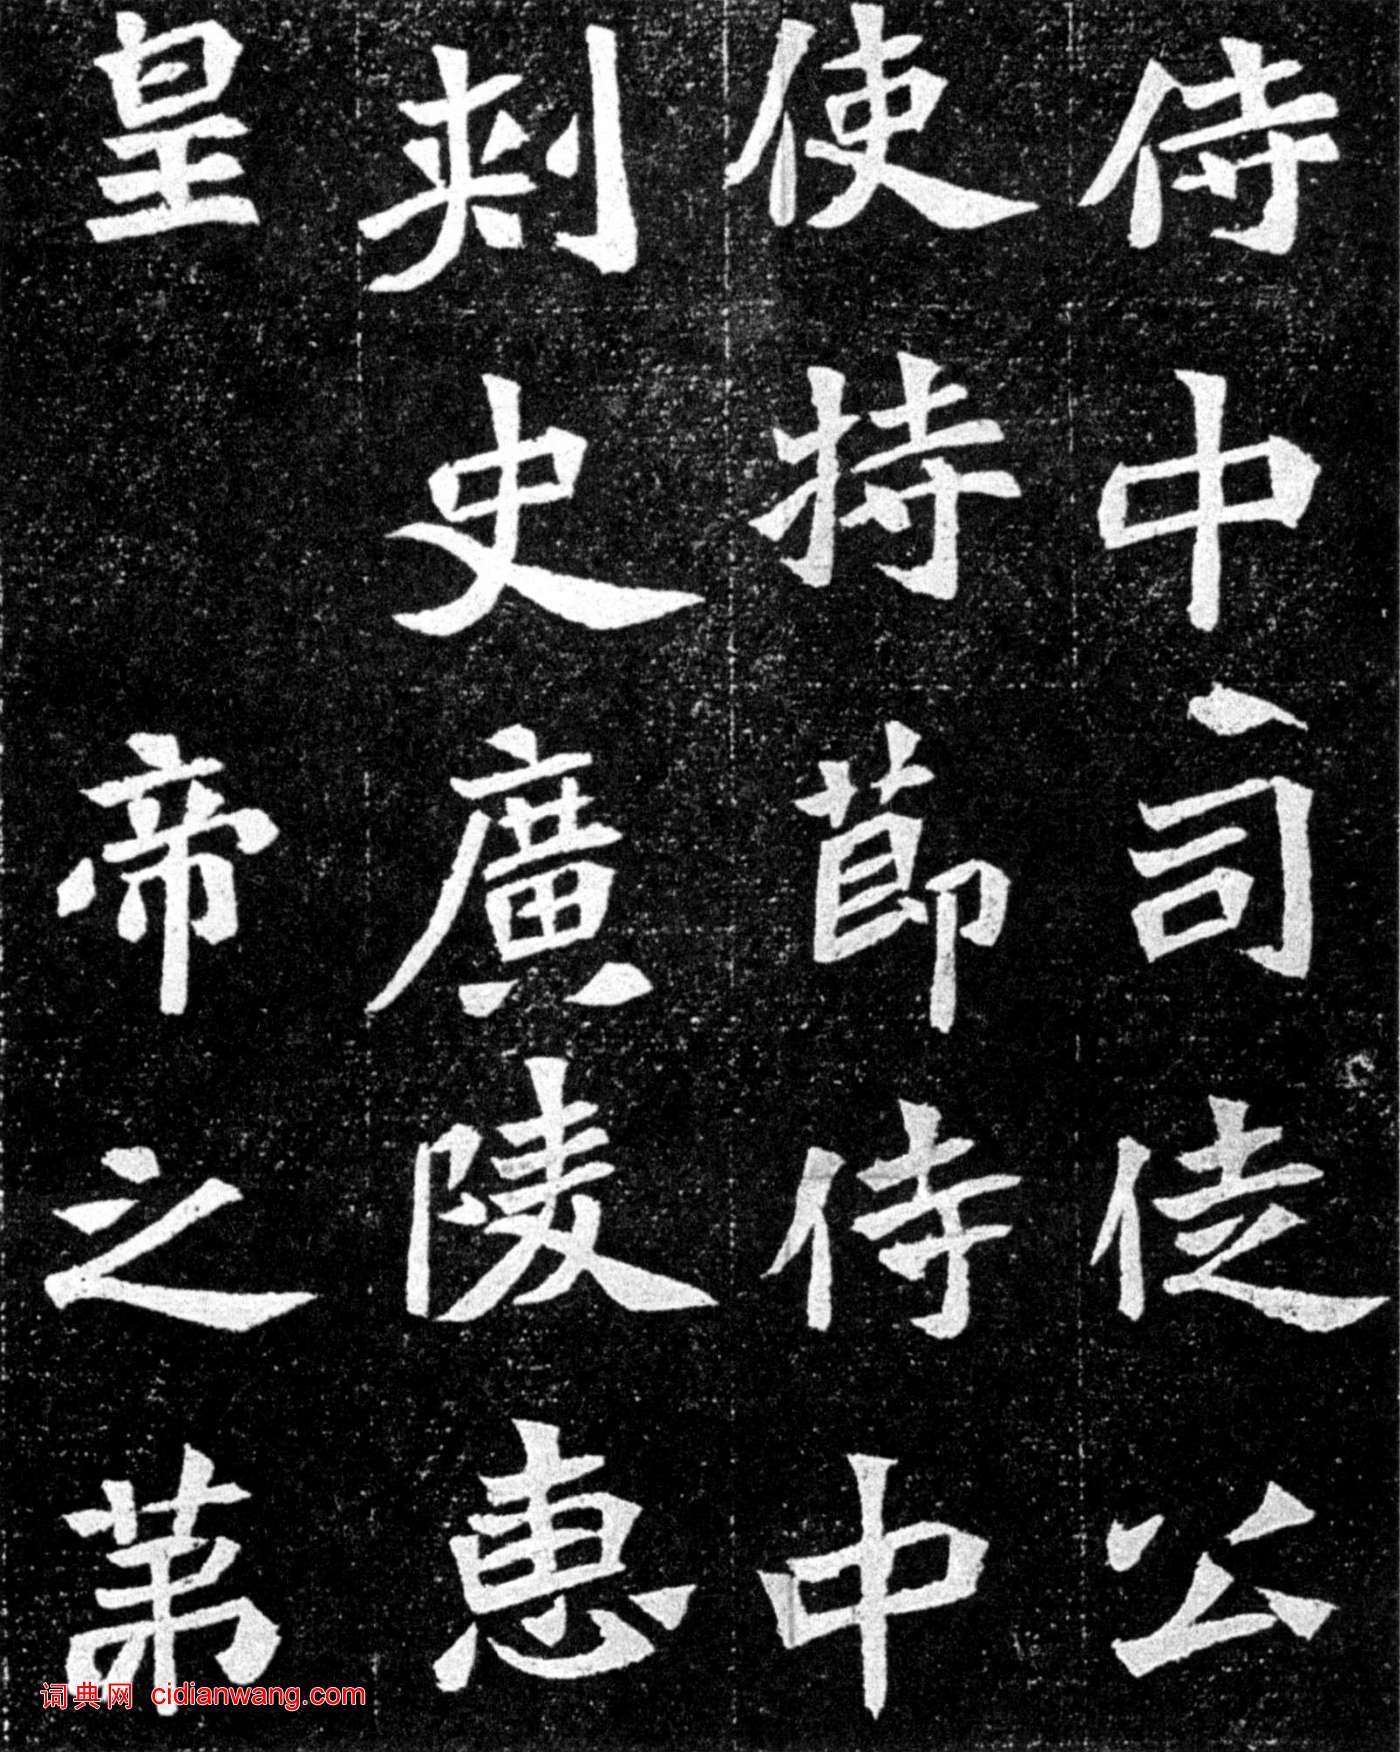 侍中司徒公
使持節侍中
刺史廣陵惠
皇帝之第
词典网 cidianwang.com